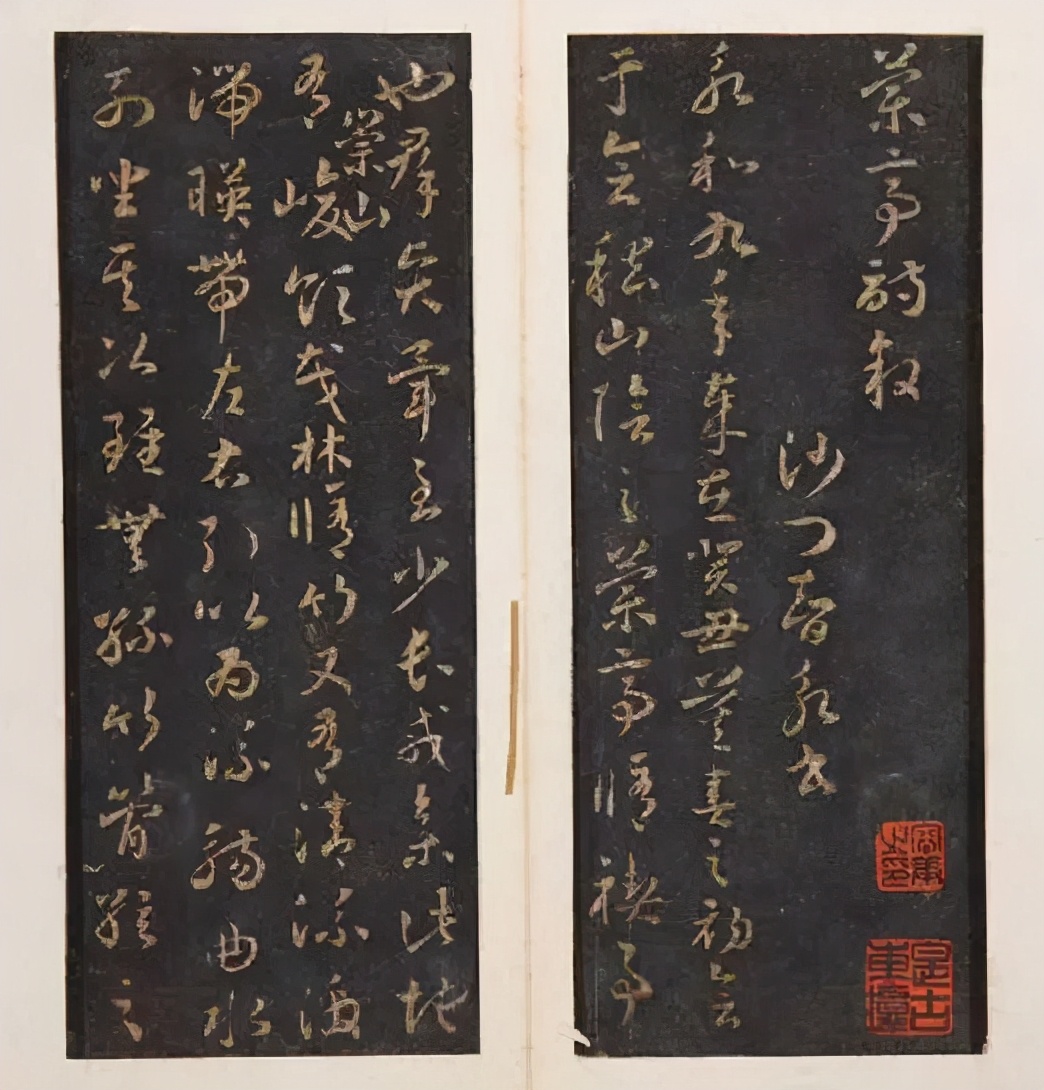 蘭亭詩敘
沙門智永書
永和九年歲在癸丑暮春之初會
于會稽山陰之蘭亭脩禊事
也群賢畢至少長咸集此地
有崇山峻領茂林脩竹又有清流激
湍暎帶左右引以為流觴曲水
列坐其次雖無絲竹管絃之